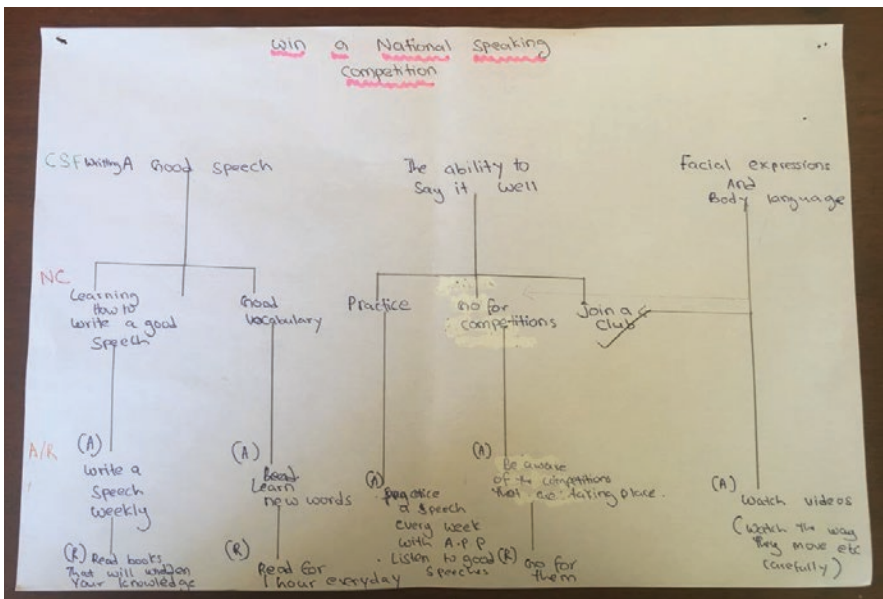 win a National Speaking
Competition
CSF Writing A Good speech
The ability to
Say it well
Facial expressions
And
Body language
NC
Learning
How to
write a good
Speech
Good
vocabulary
Practice
Go for
competitions
Join a
Club
A/R
(A)
write a
Speech
weekly
(R) Read books
That will widden
Your knowledge
(A)
Learn
new words
(R)
Read for
1 hour everyday
(A)
practice
a speech
every week
with A.P.P
. Listen to good
Speeches
(A)
Be aware
of the competitions
that are taking place.
(R) Go for
them
(A)
Watch videos
(Watch the way
They move etc
carefully)